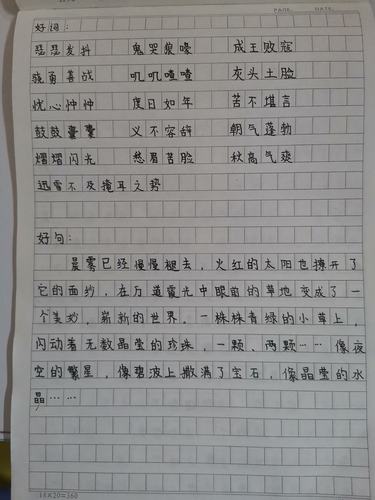 PAGE DATE
好词：
瑟瑟发抖 鬼哭狼嚎 成王败寇
骁勇善战 叽叽喳喳 灰头土脸
忧心忡忡 度日如年 苦不堪言
鼓鼓囊囊 义不容辞 朝气蓬勃
熠熠闪光 愁眉苦脸 秋高气爽
迅雷不及掩耳之势
好句：
晨雾已经慢慢褪去，火红的太阳也撩开了
它的面纱，在万道霞光中眼前的草地变成了一
个美妙，崭新的世界。一株株青绿的小草上，
闪动着无数晶莹的珍珠，一颗、两颗……像夜
空的繁星，像碧波上撒满了宝石，像晶莹的水
晶……
18×20=360